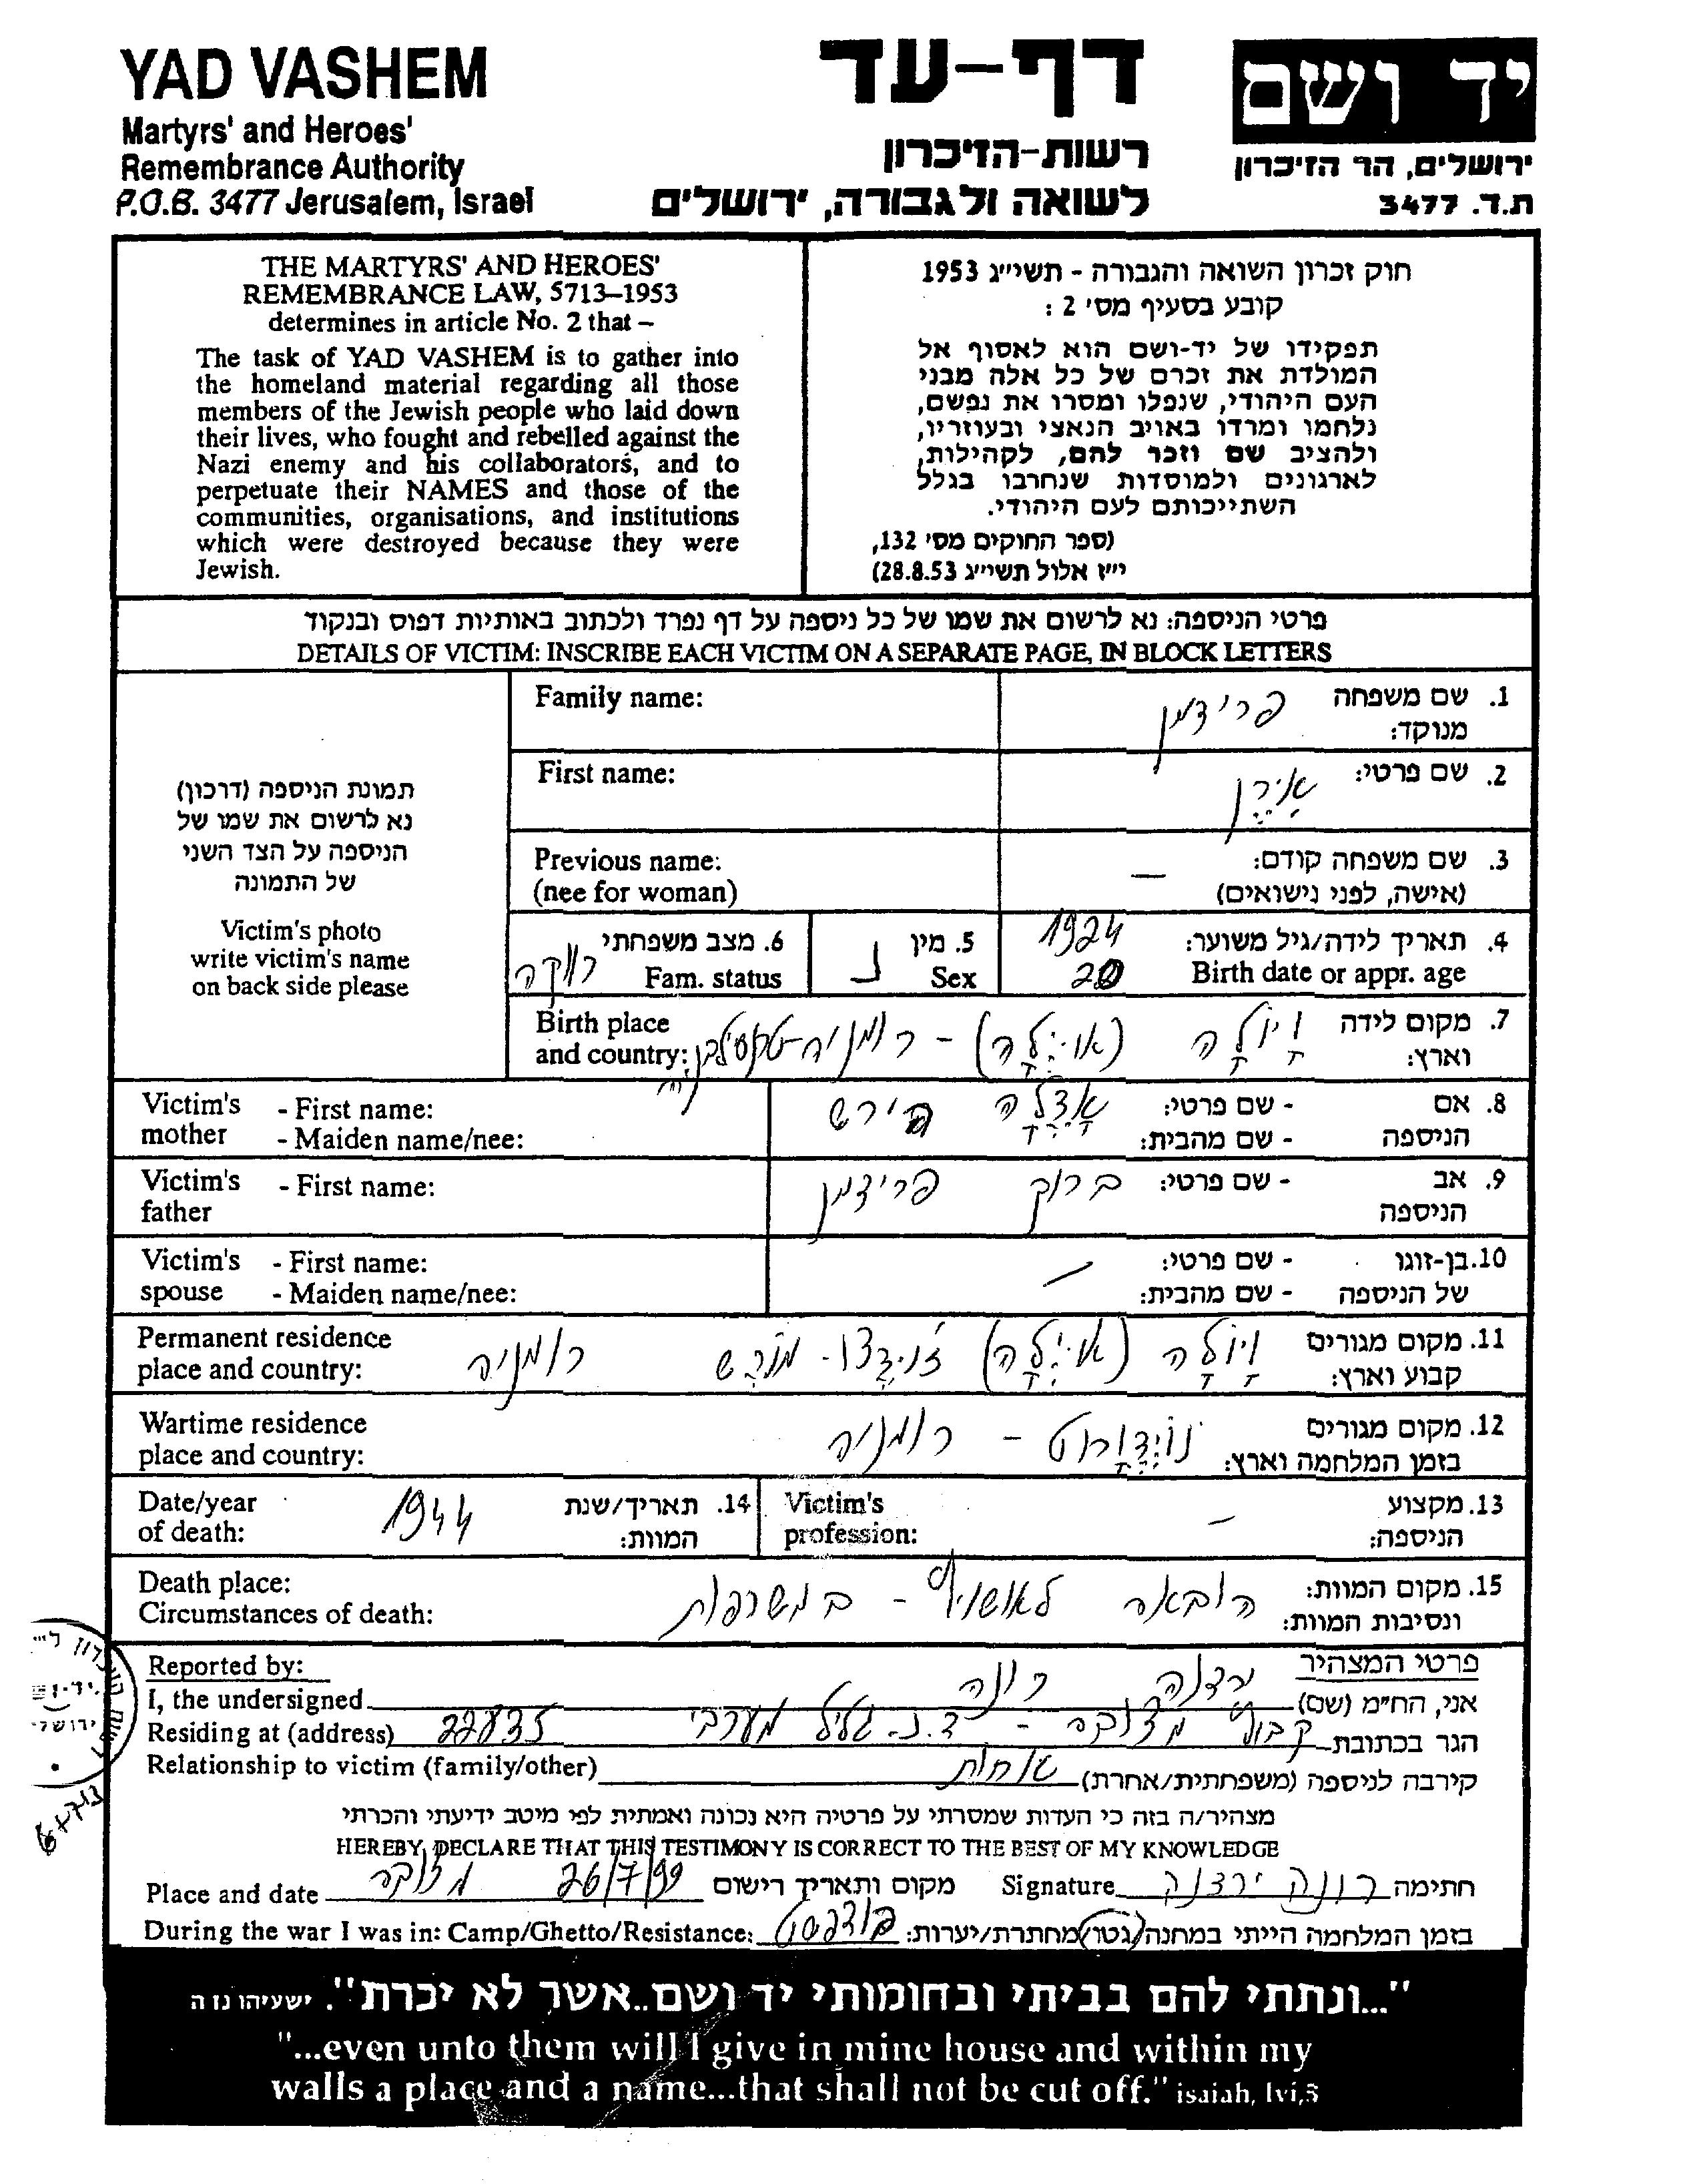 YAD VASHEM
Martyrs' and Heroes'
Remembrance Authority
P.O.B. 3477 Jerusalem, Israel
דף-עד
רשות-הזיכרון
לשואה ולגבורה, ירושלים
יד ושם
ירושלים, הר הזיכרון
ת.ד. 3477
THE MARTYRS' AND HEROES'
REMEMBRANCE LAW, 5713–1953
determines in article No. 2 that –
The task of YAD VASHEM is to gather into
the homeland material regarding all those
members of the Jewish people who laid down
their lives, who fought and rebelled against the
Nazi enemy and his collaborators, and to
perpetuate their NAMES and those of the
communities, organisations, and institutions
which were destroyed because they were
Jewish.
חוק זכרון השואה והגבורה - תשי״ג 1953
קובע בסעיף מס׳ 2 :
תפקידו של יד-ושם הוא לאסוף אל
המולדת את זכרם של כל אלה מבני
העם היהודי, שנפלו ומסרו את נפשם,
נלחמו ומרדו באויב הנאצי ובעוזריו,
ולהציב שם וזכר להם, לקהילות,
לארגונים ולמוסדות שנחרבו בגלל
השתייכותם לעם היהודי.
(ספר החוקים מס׳ 132,
י״ז אלול תשי״ג 28.8.53)
פרטי הניספה: נא לרשום את שמו של כל ניספה על דף נפרד ולכתוב באותיות דפוס ובנקוד
DETAILS OF VICTIM: INSCRIBE EACH VICTIM ON A SEPARATE PAGE, IN BLOCK LETTERS
תמונת הניספה (דרכון)
נא לרשום את שמו של
הניספה על הצד השני
של התמונה
Victim's photo
write victim's name
on back side please
Family name: פרידמן 1. שם משפחה
מנוקד:
First name: אירן 2. שם פרטי:
Previous name: — 3. שם משפחה קודם:
(nee for woman) (אישה, לפני נישואים)
6. מצב משפחתי רווקה 5. מין נ 1924 4. תאריך לידה/גיל משוער:
Fam. status Sex 20 Birth date or appr. age
Birth place ויולה (אוילה) - רומניה 7. מקום לידה
and country: וארץ:
Victim's - First name: אדלה הירש - שם פרטי: 8. אם
mother - Maiden name/nee: - שם מהבית: הניספה
Victim's - First name: ברוך פרידמן - שם פרטי: 9. אב
father הניספה
Victim's - First name: — - שם פרטי: 10. בן-זוגו
spouse - Maiden name/nee: - שם מהבית: של הניספה
Permanent residence ויולה (אוילה) מורש רומניה 11. מקום מגורים
place and country: קבוע וארץ:
Wartime residence - רומניה 12. מקום מגורים
place and country: בזמן המלחמה וארץ:
Date/year 1944 14. תאריך/שנת Victim's — 13. מקצוע
of death: המוות: profession: הניספה:
Death place: הובאה לאושויץ - במשרפות 15. מקום המוות:
Circumstances of death: ונסיבות המוות:
Reported by: פרטי המצהיר
I, the undersigned ירדנה רונה אני, הח״מ (שם)
Residing at (address) קבוץ מצובה - ד.נ. גליל מערבי 22835 הגר בכתובת
Relationship to victim (family/other) אחות קירבה לניספה (משפחתית/אחרת)
מצהיר/ה בזה כי העדות שמסרתי על פרטיה היא נכונה ואמתית לפי מיטב ידיעתי והכרתי
HEREBY DECLARE THAT THIS TESTIMONY IS CORRECT TO THE BEST OF MY KNOWLEDGE
Place and date מצובה 26/7/99 מקום ותאריך רישום Signature רונה ירדנה חתימה
During the war I was in: Camp/Ghetto/Resistance: בודפשט בזמן המלחמה הייתי במחנה/גטו/מחתרת/יערות:
"...ונתתי להם בביתי ובחומותי יד ושם..אשר לא יכרת". ישעיהו נו ה
"...even unto them will I give in mine house and within my
walls a place and a name...that shall not be cut off." isaiah, lvi,5